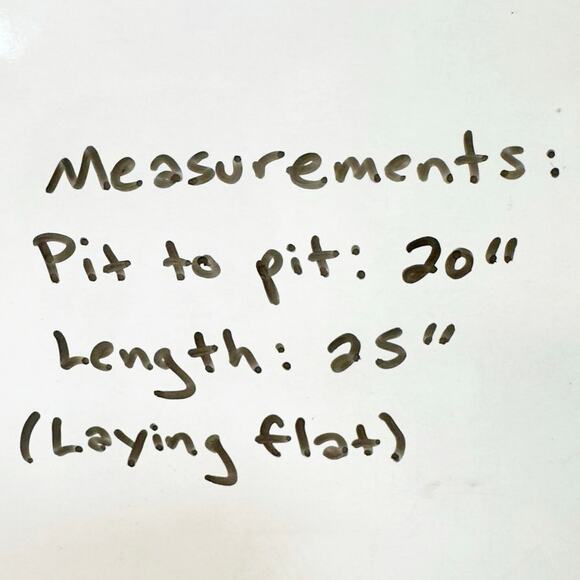 Measurements:
Pit to pit: 20"
Length: 25"
(Laying flat)